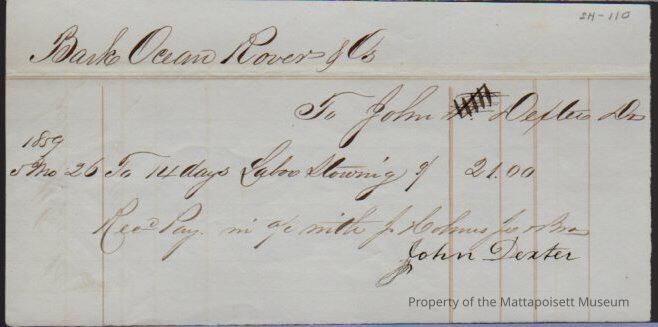 SH-110
Bark Ocean Rover & Os
To John Dexter Dr
1859
5 Mo 26 To 14 days Labor Stowing 9/ 21.00
Recd Pay. in a/c with J. Holmes Jr & Bro
John Dexter
Property of the Mattapoisett Museum